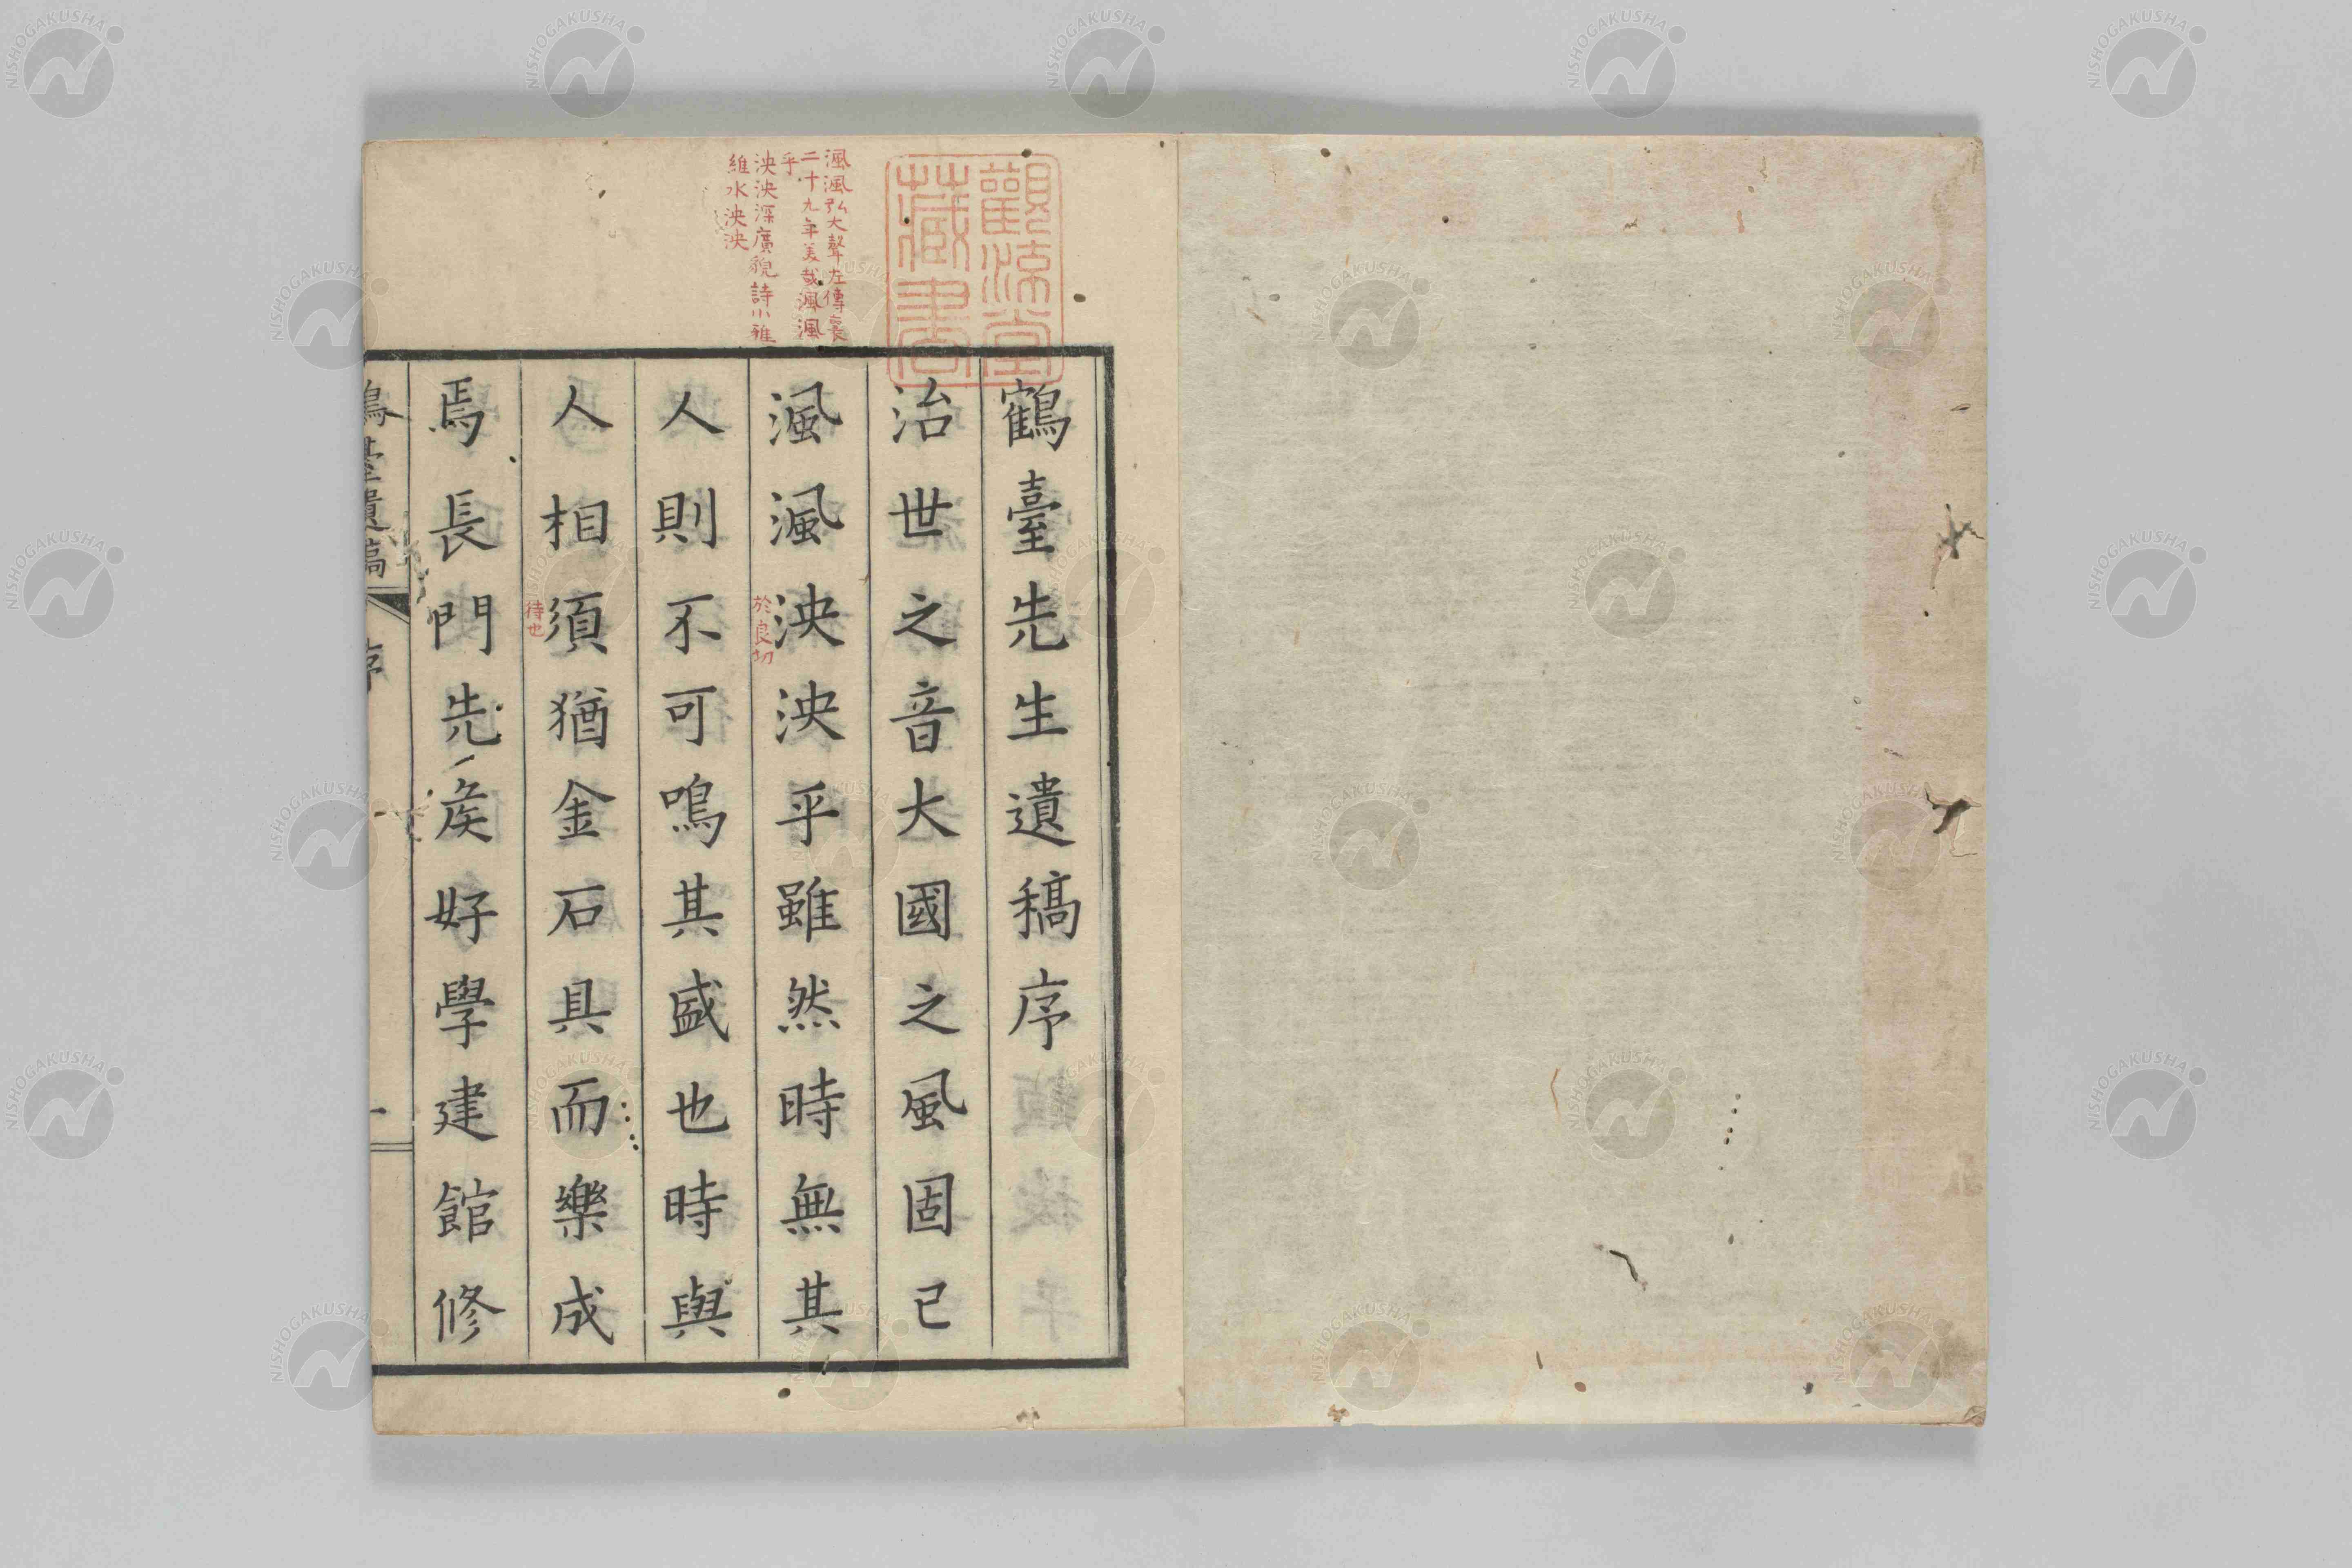 鶴臺先生遺稿序
治世之音大國之風固已
渢渢泱泱乎雖然時無其
人則不可鳴其盛也時與
人相須猶金石具而樂成
焉長門先矦好學建館修
渢渢弘大聲左傳襄
二十九年美哉渢渢
乎
泱泱深廣貌詩小雅
維水泱泱
於良切
待也
觀涼堂
藏書
鶴臺遺稿
序
一
NISHOGAKUSHA